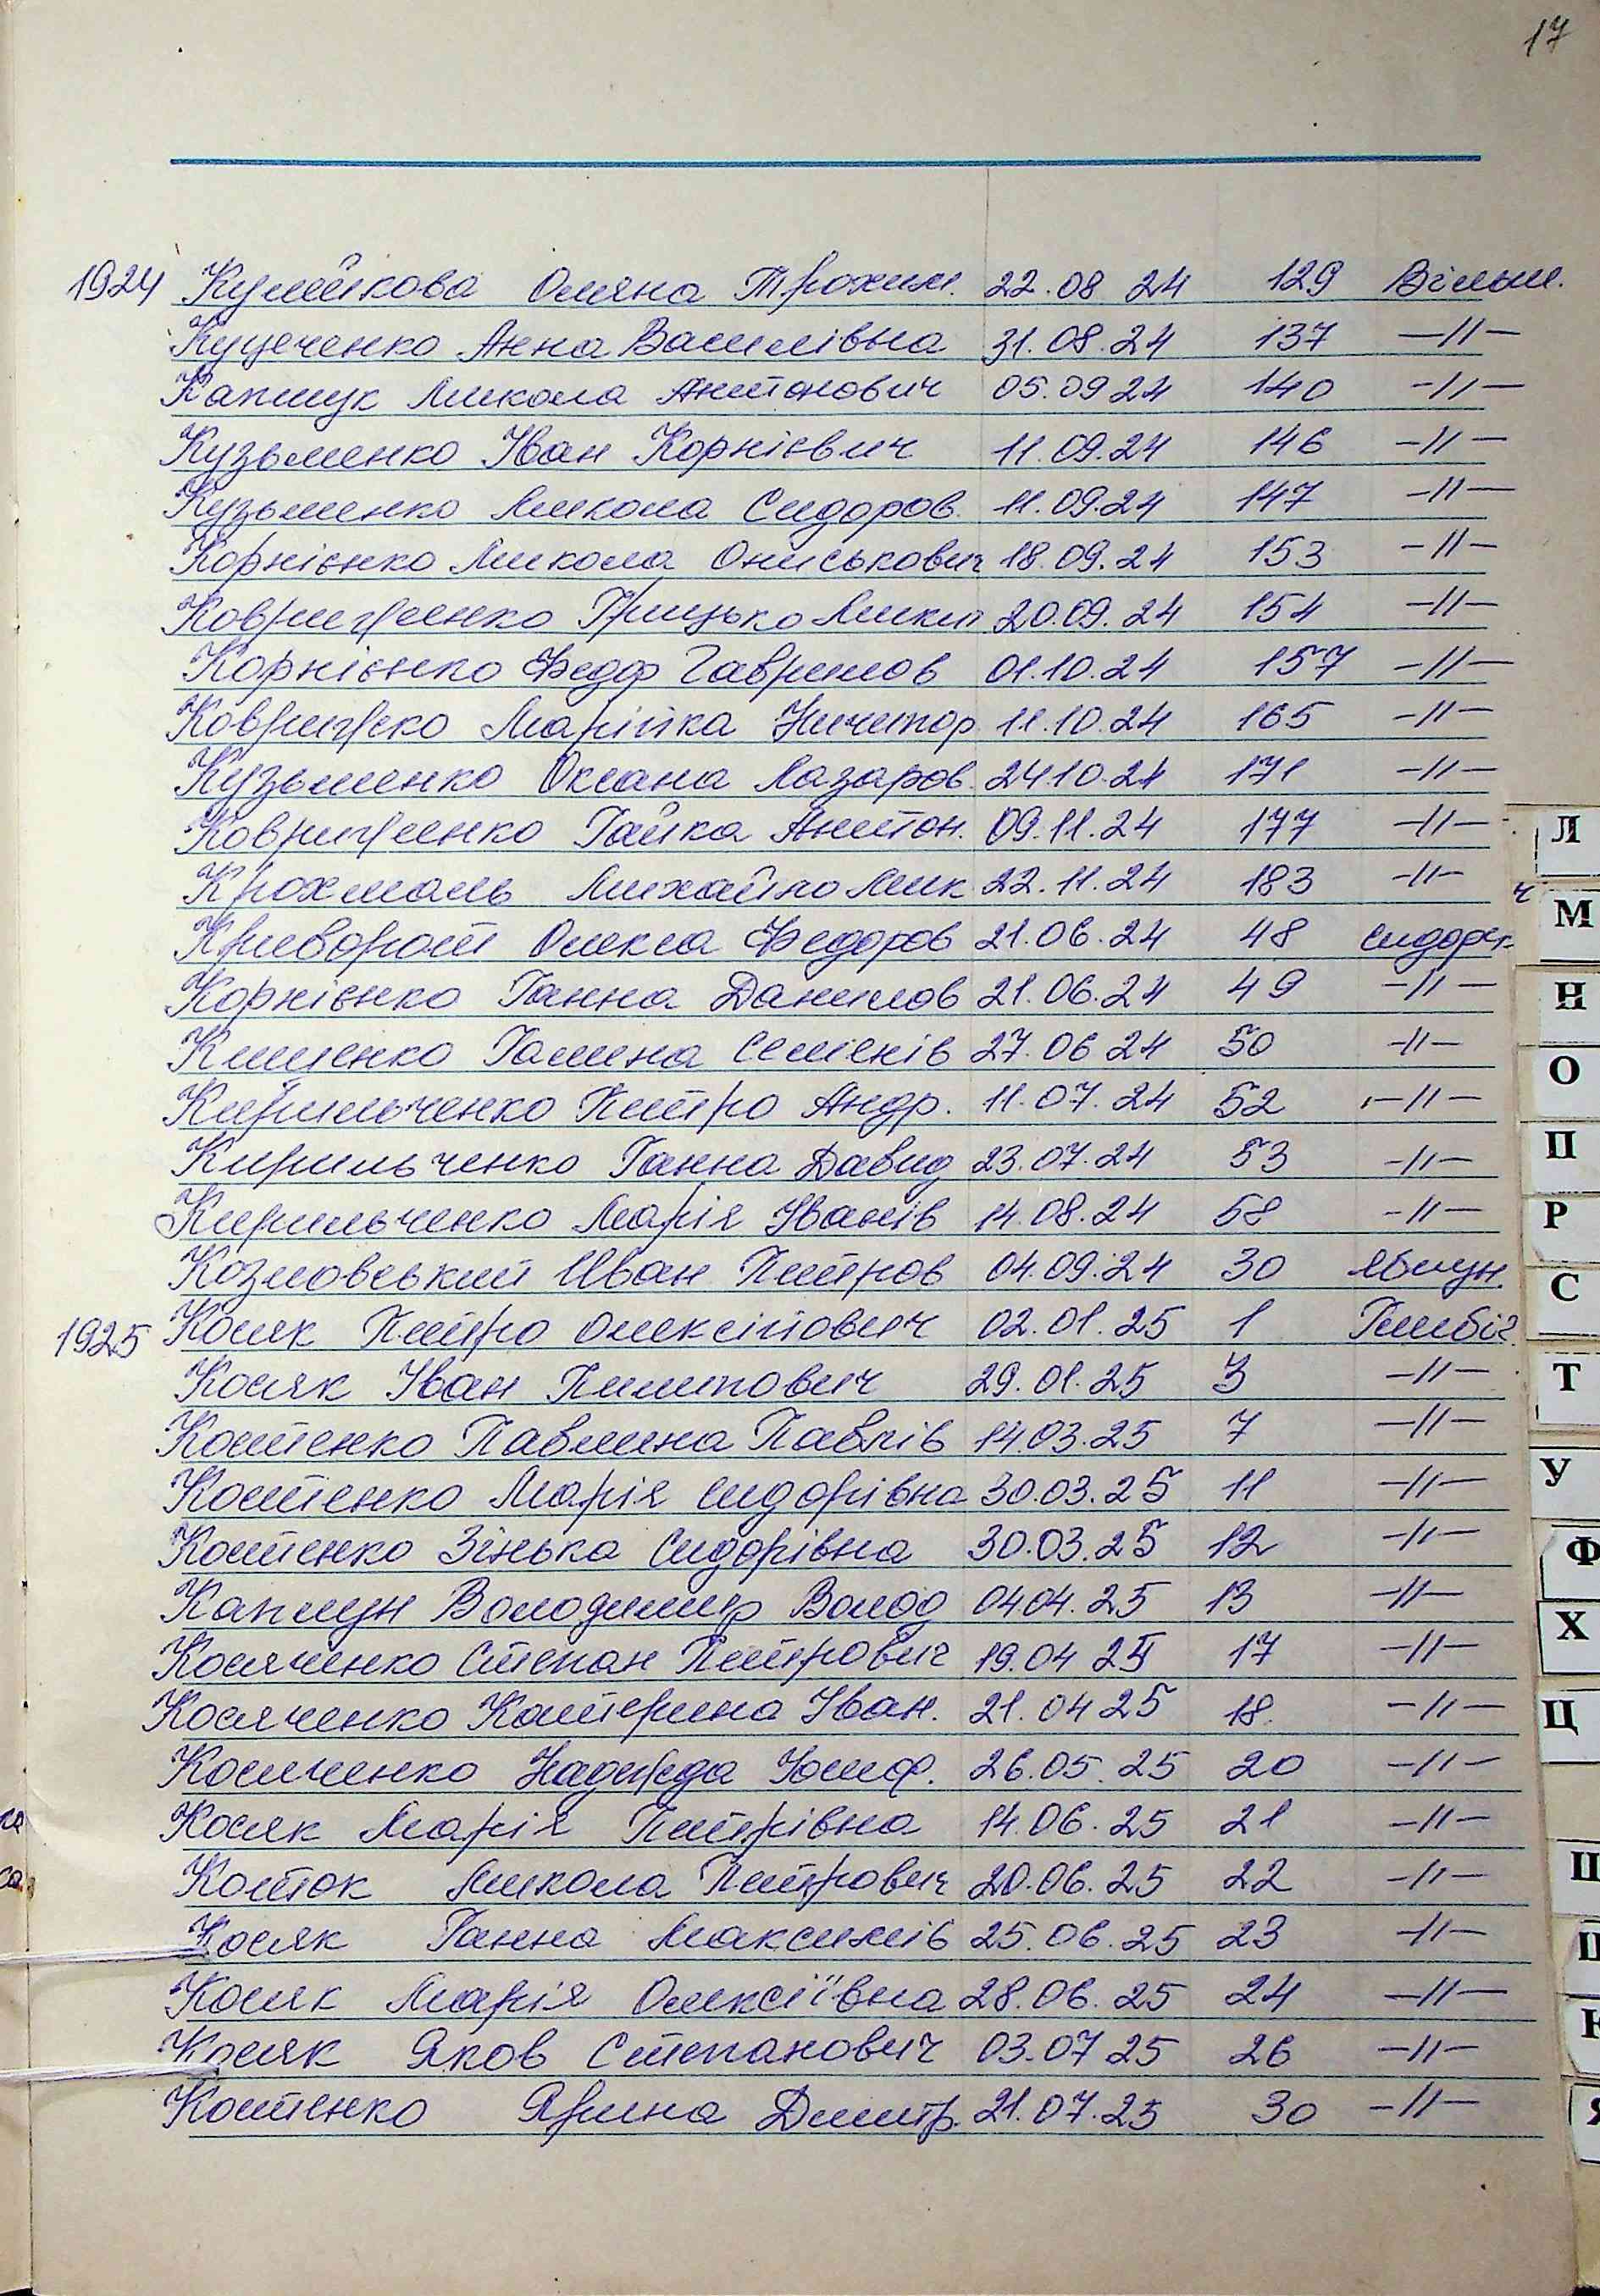 17
1924 Кулешкова Оляна Трохим. 22.08 24 129 Вільш.
Куцеченко Анна Василівна 31.08.24 137 -//-
Каплук Микола Антонович 05.09 24 140 -//-
Кузьменко Іван Корнієвич 11.09.24 146 -//-
Кузьменко Микола Сидоров. 11.09.24 147 -//-
Корнієнко Микола Ониськович 18.09.24 153 -//-
Ковриженко Грицько Микит 20.09.24 154 -//-
Корнієнко Федор Гаврилов 01.10.24 157 -//-
Коврижко Марійка Ничипор 11.10.24 165 -//-
Кузьменко Оксана Лазаров. 24.10.24 171 -//-
Ковриженко Гайка Антон. 09.11.24 177 -//-
Крохмаль Михайло Мик 22.11.24 183 -//-
Криворот Олекса Федоров 21.06.24 48 сидорк
Корнієнко Ганна Данилов 21.06.24 49 -//-
Клименко Галина Семенів 27.06 24 50 -//-
Кирильченко Петро Андр. 11.07.24 52 -//-
Кирильченко Ганна Давид 23.07.24 53 -//-
Кирильченко Марія Іванів 14.08.24 58 -//-
Козловський Иван Петров 04.09.24 30 Яблун.
1925 Косяк Петро Олексійович 02.01.25 1
Косяк Іван Пилипович 29.01.25 3 -//-
Костенко Павлина Павлів 14.03.25 7 -//-
Костенко Марія Сидорівна 30.03.25 11 -//-
Костенко Зінька Сидорівна 30.03.25 12 -//-
Каплун Володимир Волод 04 04.25 13 -//-
Косяченко Степан Петрович 19.04 25 17 -//-
Косяченко Катерина Іван. 21.04 25 18 -//-
Косяченко Надежда Юсиф. 26.05.25 20 -//-
Косяк Марія Петрівна 14.06.25 21 -//-
Костюк Микола Петрович 20.06.25 22 -//-
Косяк Ганна Максимів 25.06.25 23 -//-
Косяк Марія Олексіївна 28.06.25 24 -//-
Косяк Яков Степанович 03.07 25 26 -//-
Костенко Ярина Дмитр. 21.07.25 30 -//-
Л
М
Н
О
П
Р
С
Т
У
Ф
Х
Ц